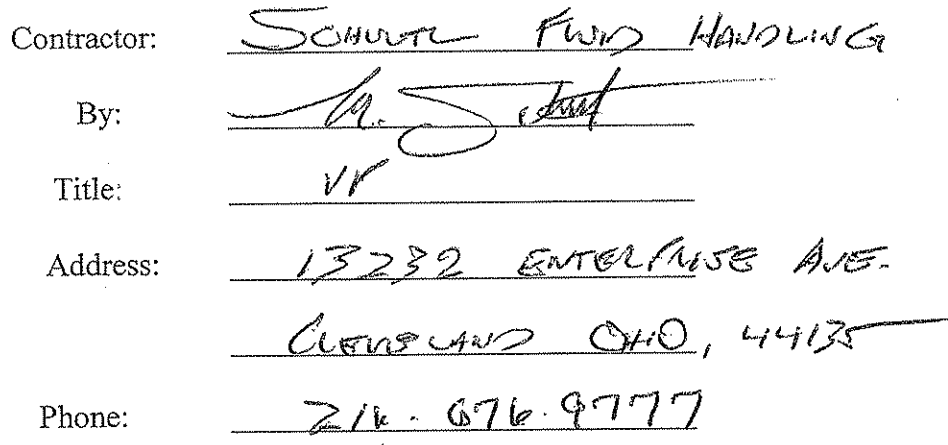 Contractor: SCHULTZ FLUID HANDLING
By:
Title: VP
Address: 13232 ENTERPRISE AVE.
CLEVELAND OHIO, 44135
Phone: 216.676.9777